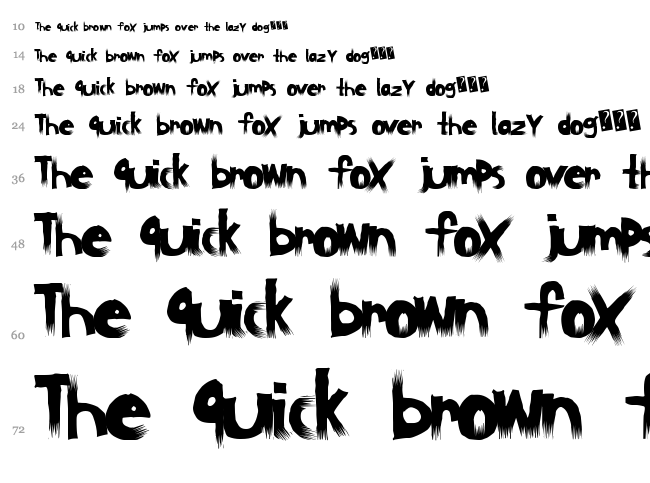 10 The quick brown fox jumps over the lazy dog
14 The quick brown fox jumps over the lazy dog
18 The quick brown fox jumps over the lazy dog
24 The quick brown fox jumps over the lazy dog
36 The quick brown fox jumps over th
48 The quick brown fox jumps
60 The quick brown fox
72 The quick brown f